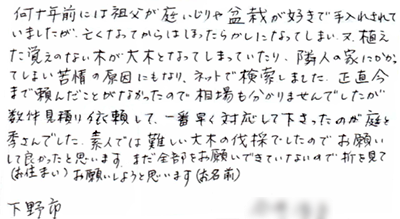 何十年前には祖父が庭いじりや盆栽が好きで手入れされて
いましたが、亡くなってからはほったらかしになってしまい又、植え
た覚えのない木が大木となってしまっていたり、隣人の家にかかっ
てしまい苦情の原因にもなり、ネットで検索しました。正直今
まで頼んだことがなかったので相場も分かりませんでしたが
数件見積り依頼して、一番早く対応して下さったのが庭と
季さんでした。素人では難しい大木の伐採でしたのでお願い
して良かったと思います。まだ全部をお願いできていないので折を見て
(お住まい) お願いしようと思います(お名前)
下野市